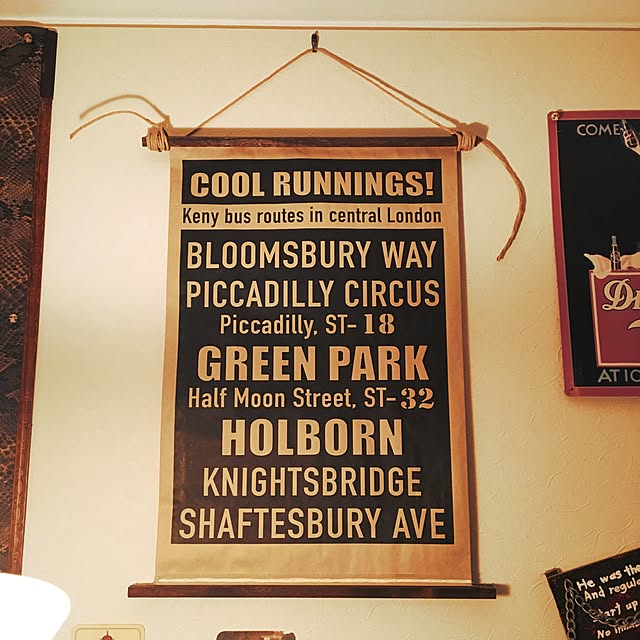 COOL RUNNINGS!
Keny bus routes in central London
BLOOMSBURY WAY
PICCADILLY CIRCUS
Piccadilly, ST-18
GREEN PARK
Half Moon Street, ST-32
HOLBORN
KNIGHTSBRIDGE
SHAFTESBURY AVE
COME
AT
He was the
And
up
No